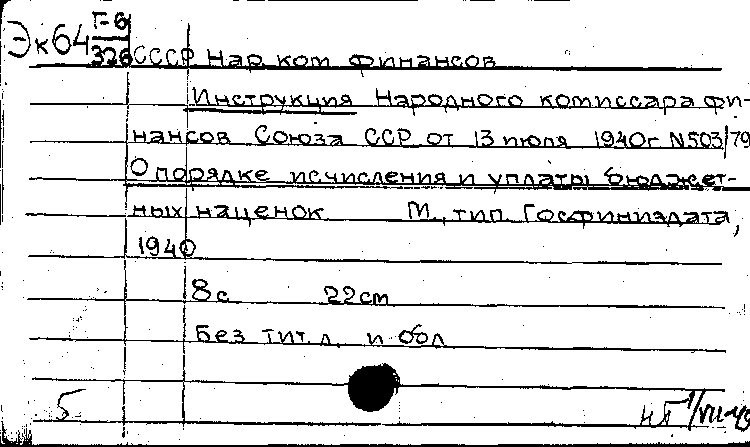 Эк64 Г-6/326 СССР Нар ком финансов
Инструкция Народного комиссара фи-
нансов Союза ССР от 13 июля 1940г N503/79
О порядке исчисления и уплаты бюджет-
ных наценок М., тип. Госфиниздата,
1940
8с 22см
Без тит. л. и обл
5